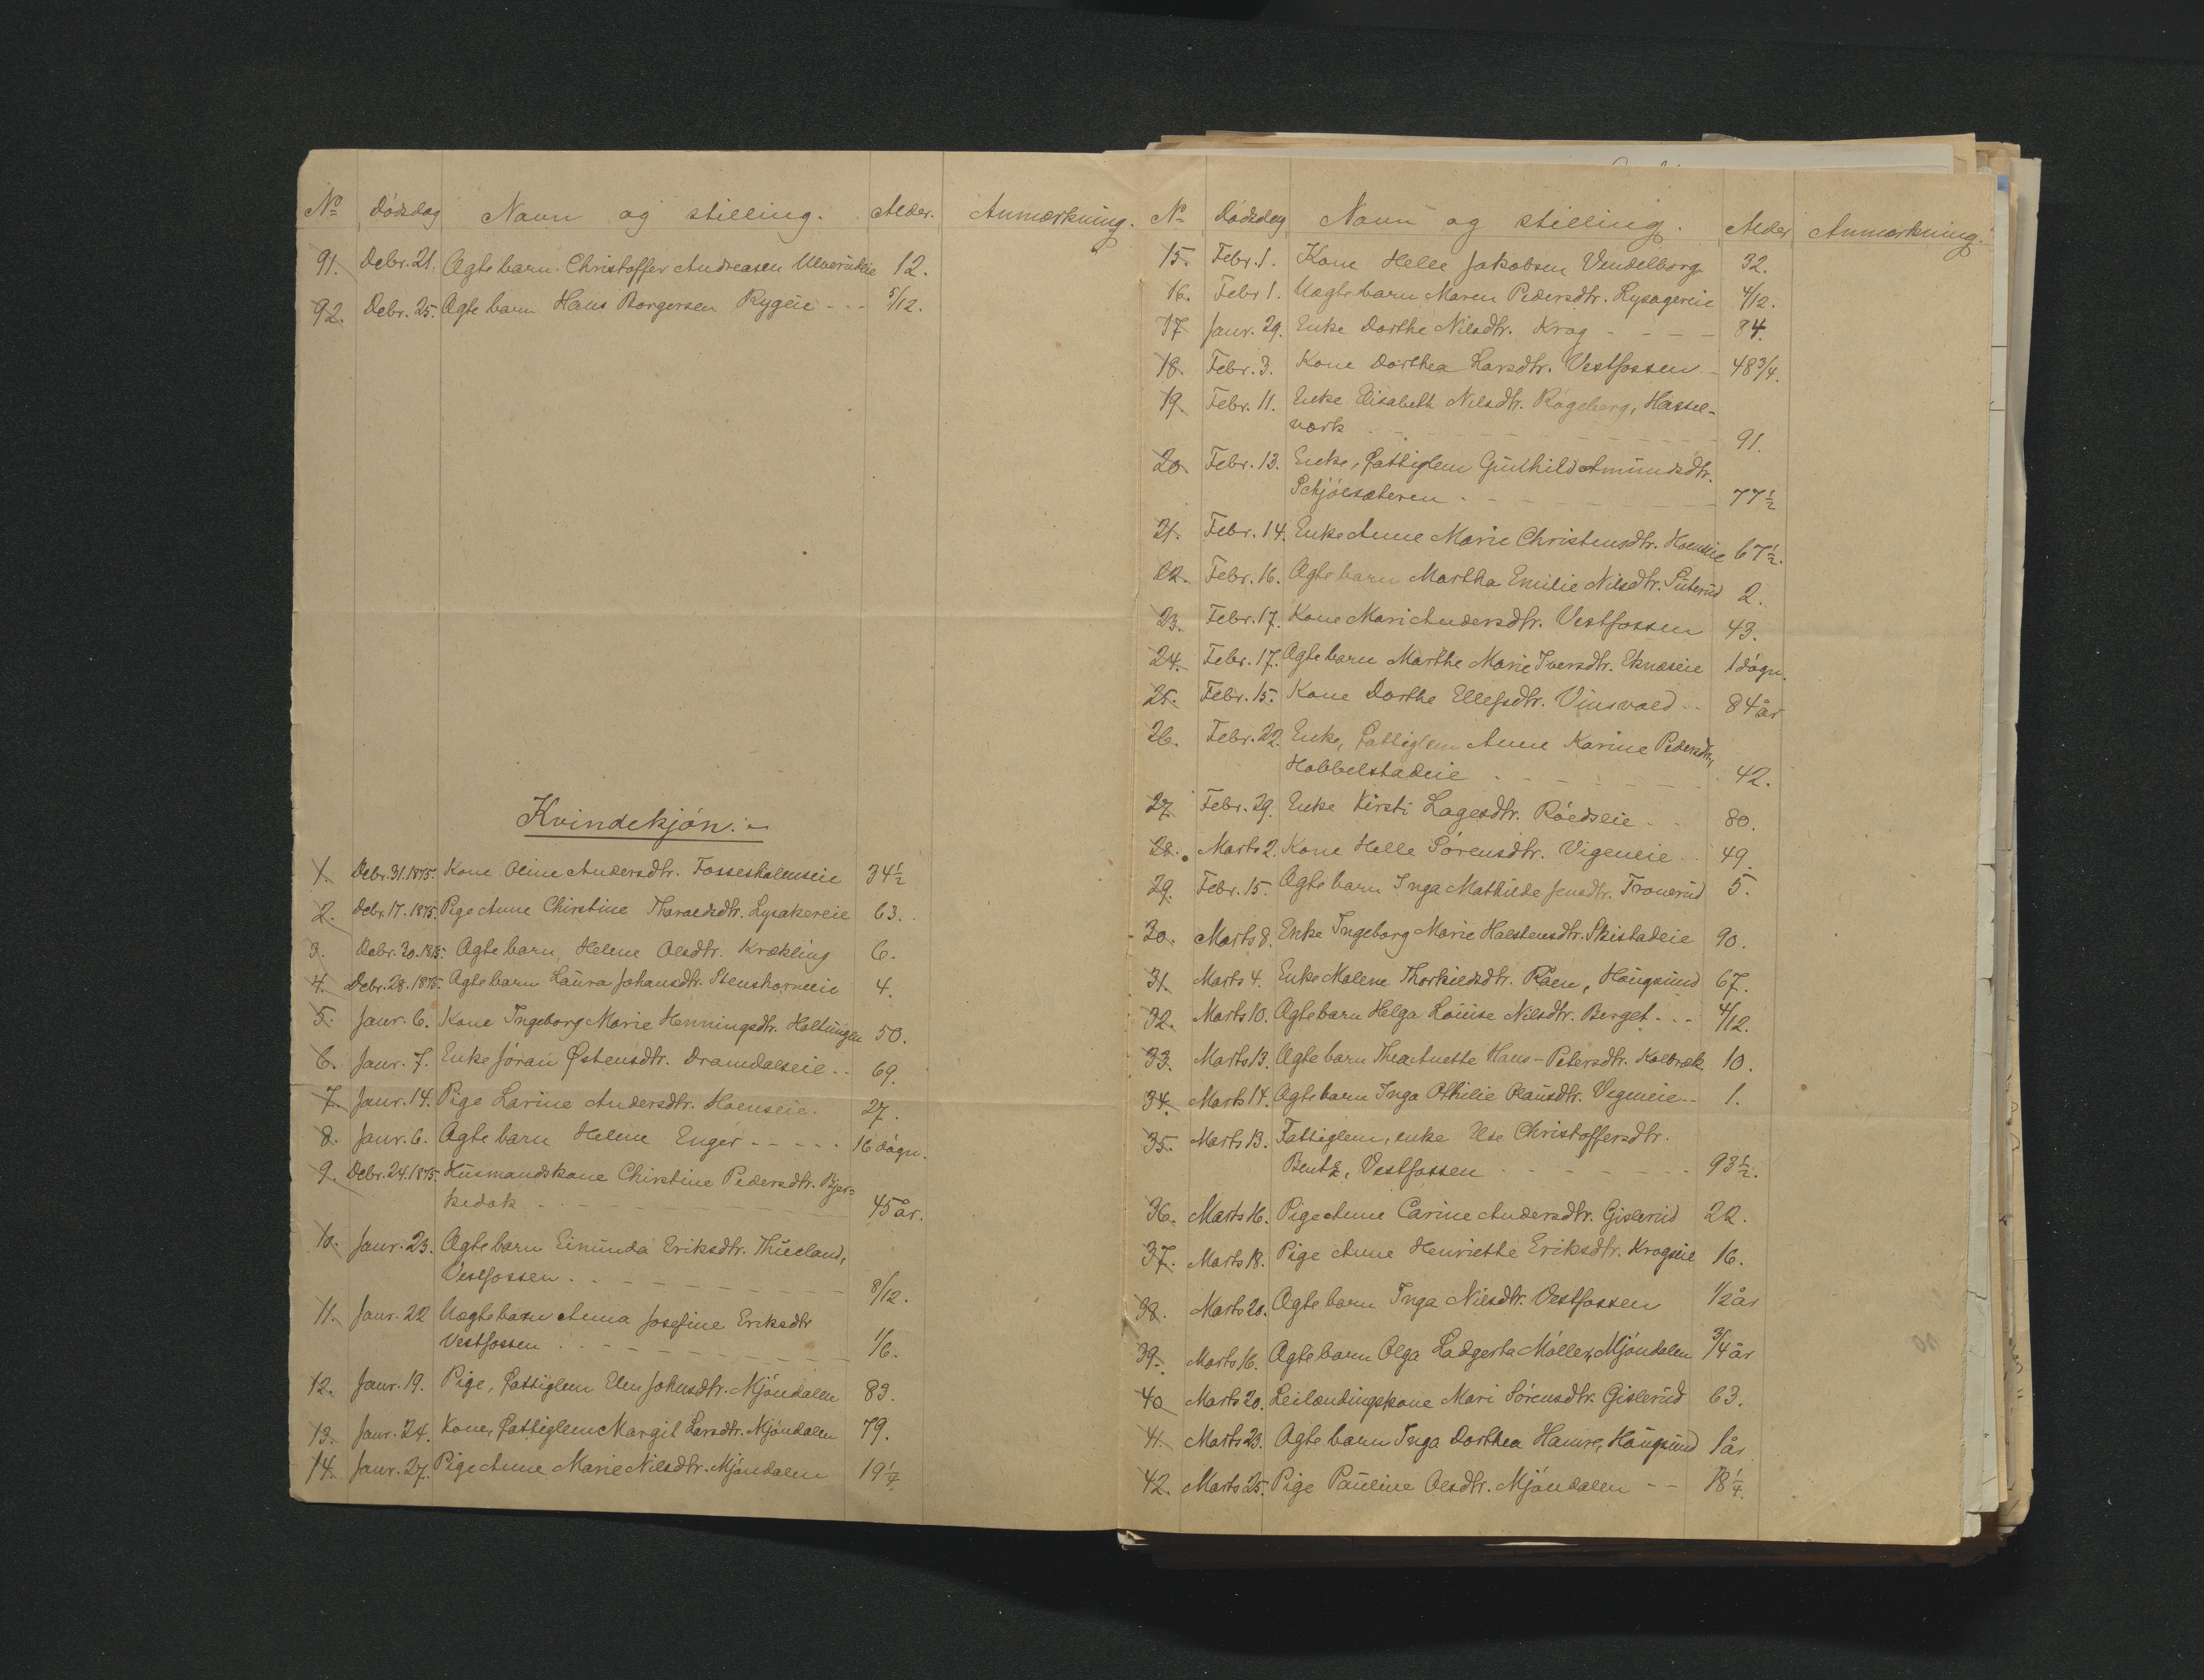 No Dödsdag Navn og stilling. Alder. Anmærkning.
91. Debr. 21. Ægte barn Christoffer Andreasen Ulverudeie 12.
92. Debr. 25. Ægte barn Hans Borgersen Rygeie - - - 5/12.
Kvindekjön:
1. Debr. 31. 1875. Kone Oline Andersdtr. Fossesholmseie 34 1/2
2. Debr. 17. 1875. Pige Anne Chirstine Tharaldsdtr. Lysakereie 63.
3. Debr. 20. 1875. Ægte barn, Helene Olsdtr. Krækling 6.
4. Debr. 28. 1875. Ægte barn Laura Johansdtr. Stenshorneeie 4.
5. Janr. 6. Kone Ingeborg Marie Henningsdtr. Holtungen 50.
6. Janr. 7. Enke Jöran Østensdtr. Dramdalseie - - 69.
7. Janr. 14. Pige Larine Andersdtr. Hoenseie. 27.
8. Janr. 6. Ægte barn Helene Enger - - - - - 16 dögn.
9. Debr. 24. 1875. Husmandskone Chirstine Pedersdtr. Bjer-
kedok - - - 45 år.
10. Janr. 23. Ægte barn Einunda Eriksdtr. Thueland,
Vestfossen - - - 8/12.
11. Janr. 22 Uægte barn Anna Josefine Eriksdtr
Vestfossen - - - 1/6.
12. Janr. 19. Pige, Fattiglem Elen Johnsdtr. Mjöndalen 83.
13. Janr. 24. Kone, Fattiglem Margit Larsdtr. Mjöndalen 79.
14. Janr. 27. Pige Anne Marie Nilsdtr. Mjöndalen 19 1/4.
No Dödsdag Navn og stilling. Alder Anmærkning.
15. Febr. 1. Kone Helle Jakobsen Vendelborg 32.
16. Febr 1. Uægte barn Maren Pedersdtr. Lysagereie 4/12.
17. Janr. 29. Enke Dorthe Nilsdtr. Krog - - - - 84.
18. Febr. 3. Kone Dorthea Larsdtr. Vestfossen - 48 3/4.
19. Febr. 11. Enke Elisabeth Nilsdtr. Rogeberg, Hassel-
værk - - - 91.
20. Febr. 13. Enke, Fattiglem Gunhild Amundsdtr.
Schjölsæteren - - - 77 1/2
21. Febr. 14. Enke Anne Marie Christensdtr. Hoenseie 67 1/2.
22. Febr. 16. Ægte barn Martha Emilie Nilsdtr. Süterud 2.
23. Febr. 17. Kone Mari Andersdtr. Vestfossen 43.
24. Febr. 17. Ægte barn Marthe Marie Iversdtr. Eknæseie 1 dögn.
25. Febr. 15. Kone Dorthe Ellefsdtr. Vinsvold - - 84 år
26. Febr. 22. Enke, Fattiglem Anne Karine Pedersdtr,
Hobbelstadeie - - - 42.
27. Febr. 29. Enke Kirsti Lagesdtr. Röedseie - - 80.
28. Marts 2. Kone Helle Sörensdtr. Vigeneie - - 49.
29. Febr. 15. Ægte barn Inga Mathilde Jensdtr. Tronrud 5.
30. Marts 8. Enke Ingeborg Marie Halstensdtr. Skistadeie 90.
31. Marts 4. Enke Malene Thorkildsdtr. Råen, Hougsund 67.
32. Marts 10. Ægte barn Helga Lovise Nilsdtr. Berget - - - 4/12.
33. Marts 13. Ægte barn Thea Anette Hans-Petersdtr. Kolbræk 10.
34. Marts 14. Ægte barn Inga Othilie Olausdtr. Vegneie - - 1.
35. Marts 13. Fattiglem, enke Else Christoffersdtr.
Bentz, Vestfossen - - - 93 1/2.
36. Marts 16. Pige Anne Carine Andersdtr. Gislerud 22.
37. Marts 18. Pige Anne Henriette Eriksdtr. Krogseie 16.
38. Marts 20. Ægte barn Inga Nilsdtr. Vestfossen 1/2 år
39. Marts 16. Ægte barn Olga Ladgerta Möller, Mjöndalen 3/4 år
40 Marts 20. Leilændingskone Mari Sörensdtr. Gislerud 63.
41. Marts 23. Ægte barn Inga Dorthea Hamre, Hougsund 1 år
42. Marts 25. Pige Pauline Olsdtr. Mjöndalen - - 18 1/4.